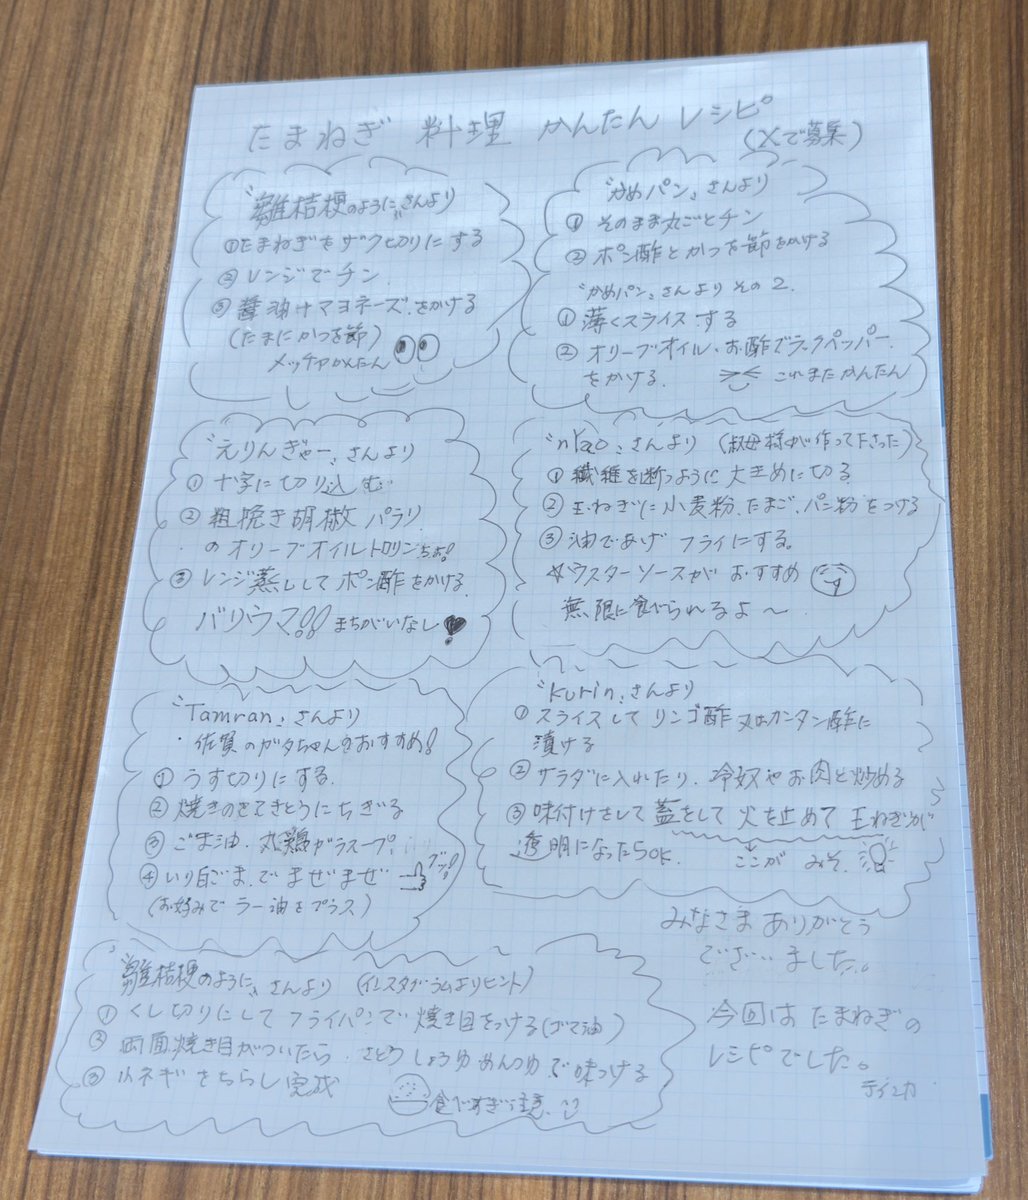 たまねぎ 料理 かんたん レシピ
(Xで募集)
〝雛桔梗のように〟さんより
①たまねぎをザク切りにする
②レンジでチン
③醤油+マヨネーズ.をかける
(たまにかつを節)
メッチャかんたん
〝かめパン〟さんより
①そのまま丸ごとチン
②ポン酢とかつを節をかける
〝かめパン〟さんより その2.
①薄くスライスする
②オリーブオイル.お酢.ブラックペッパー.
をかける.
これまたかんたん
〝えりんぎゃー〟さんより
①十字に切り込む
②粗挽き胡椒 パラリ
のオリーブオイルトロリンちょ!
③レンジ蒸しして ポン酢をかける.
バリウマ!! まちがいなし
〝nao〟さんより (叔母様が作って下さった)
①繊維を断つように大きめに切る
②玉ねぎに小麦粉.たまご.パン粉をつける
③油であげ フライにする.
☆ウスターソースが おすすめ
無限に食べられるよ〜
〝Tamran〟さんより
佐賀のガタちゃんのおすすめ!
①うす切りにする.
②焼きのりをてきとうにちぎる
③ごま油.丸鶏ガラスープ
④いり白ごま.でまぜまぜ
グッ!!
(お好みでラー油をプラス)
〝Kurin〟さんより
①スライスして リンゴ酢 又はカンタン酢に
漬ける
②サラダに入れたり.冷奴やお肉と炒める
③味付けをして 蓋をして 火を止めて 玉ねぎが
透明になったらOK.
ここが みそ.
〝雛桔梗のように〟さんより (インスタグラムよりヒント)
①くし切りにして フライパンで 焼き目をつける(ごま油)
②両面焼き目がついたら.さとう しょうゆ めんつゆ で味つける
③小ネギをちらし完成
食べすぎ注意.
みなさま ありがとう
ございました。
今回は たまねぎの
レシピでした。